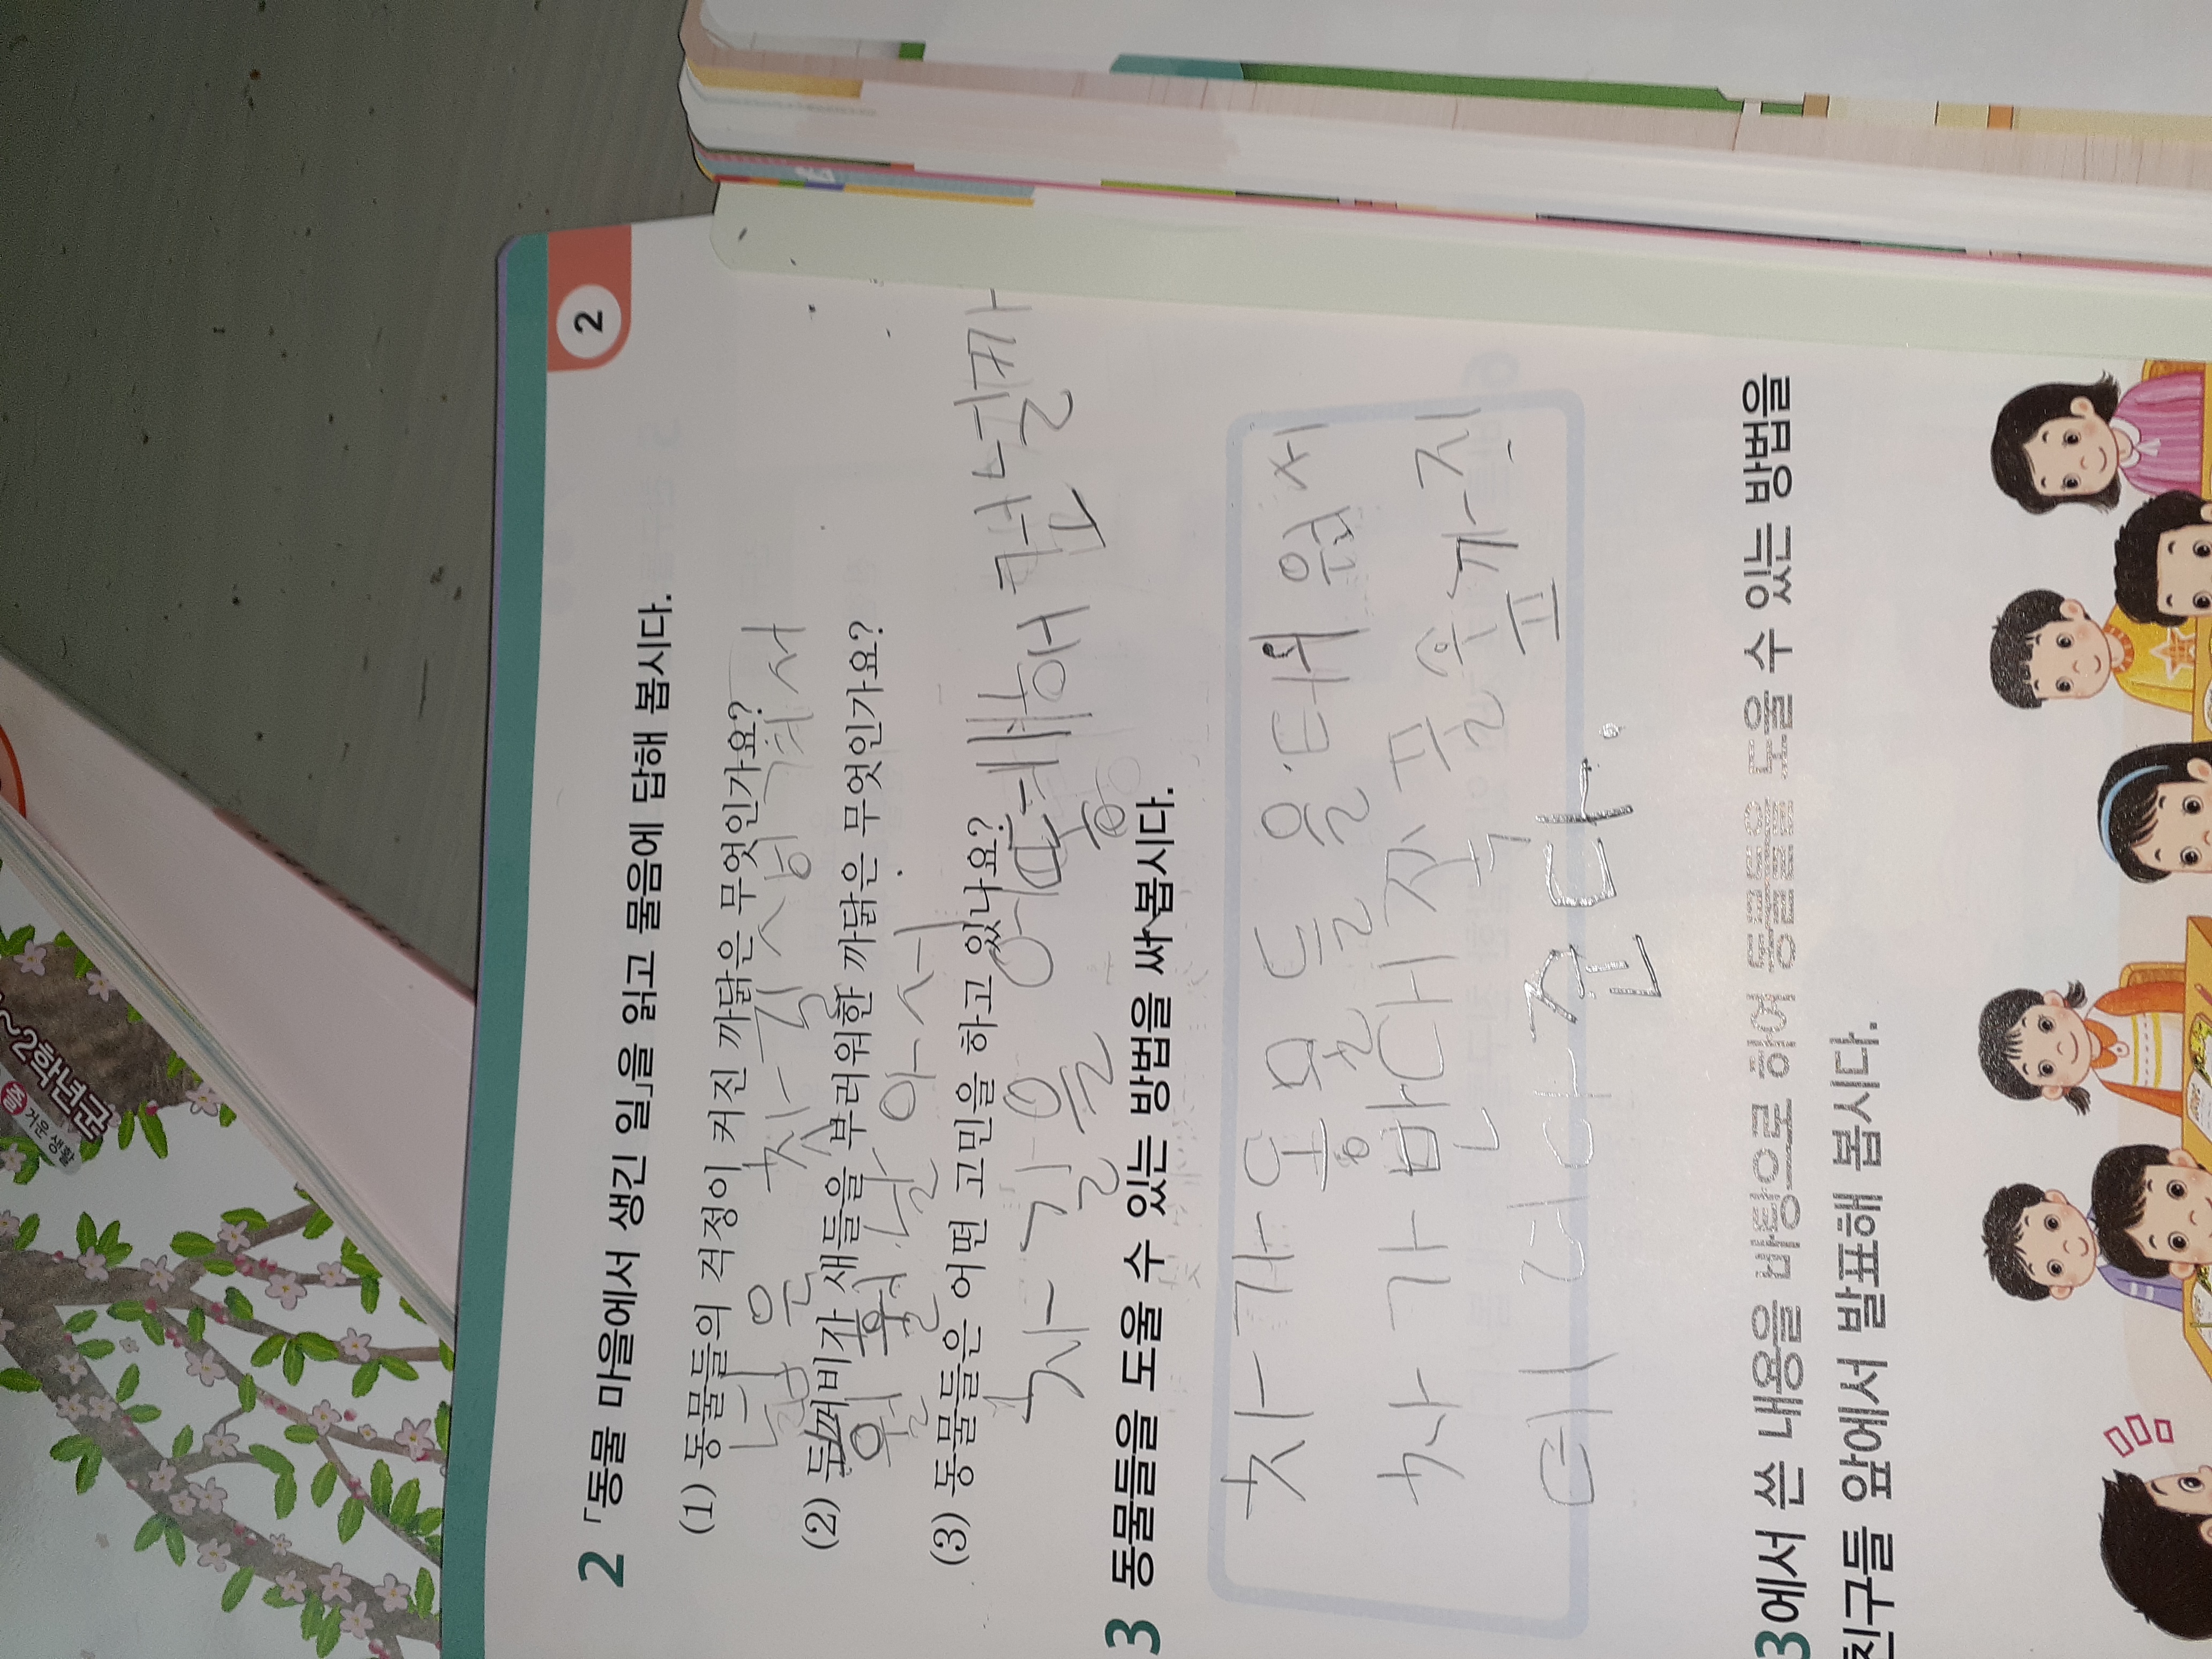 2 「동물 마을에서 생긴 일」을 읽고 물음에 답해 봅시다.
(1) 동물들의 걱정이 커진 까닭은 무엇인가요?
넓은 찻길이 생겨서
(2) 두꺼비가 새들을 부러워한 까닭은 무엇인가요?
훨훨 날아서
(3) 동물들은 어떤 고민을 하고 있나요?
찻길을 어떻게하면 건널까
3 동물들을 도울 수 있는 방법을 써 봅시다.
차가 동물들을 태워서
차가 반대쪽 풀숲까지
데려다 준다.
3에서 쓴 내용을 바탕으로 하여 동물을 도울 수 있는 방법을
친구들 앞에서 발표해 봅시다.
2